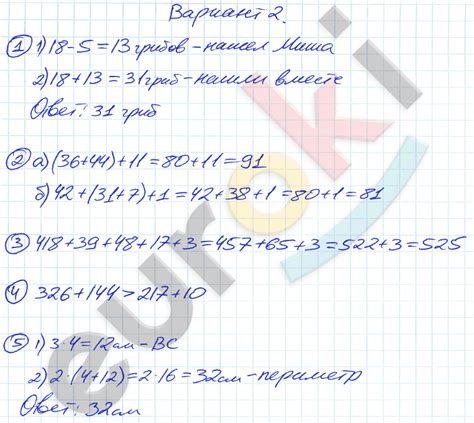 Вариант 2.
① 1) 18-5=13 грибов - нашел Миша
2) 18+13=31 гриб - нашли вместе
Ответ: 31 гриб
② а) (36+44)+11=80+11=91
б) 42+(31+7)+1=42+38+1=80+1=81
③ 418+39+48+17+3=457+65+3=522+3=525
④ 326+144>217+10
⑤ 1) 3·4=12см-ВС
2) 2·(4+12)=2·16=32см-периметр
Ответ: 32см
euroki